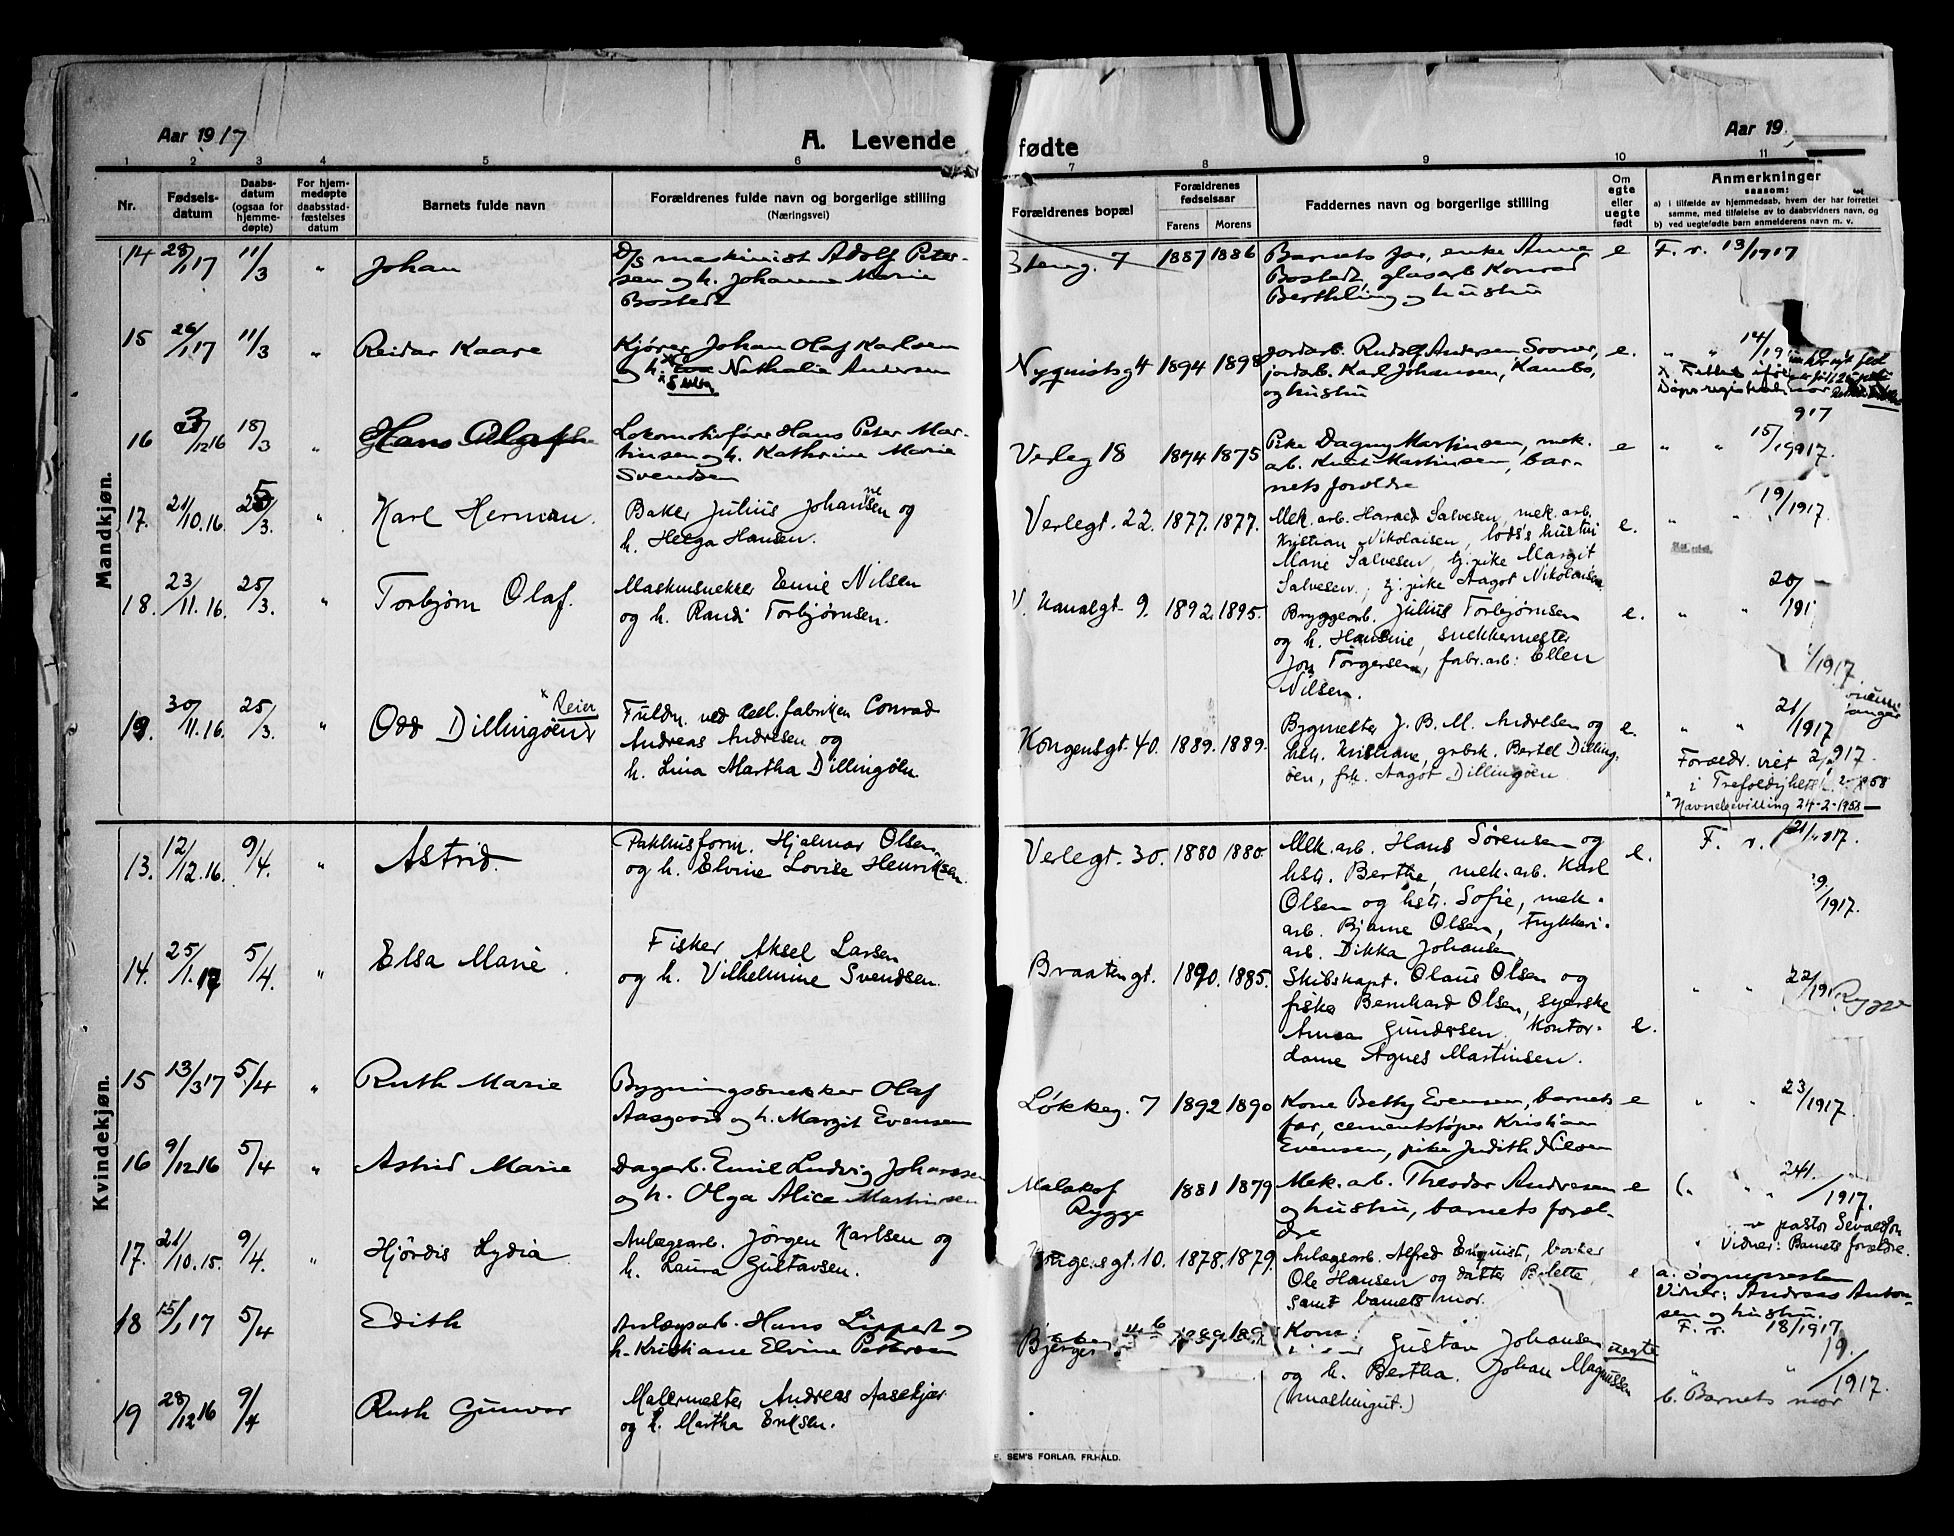 Aar 1917
A. Levende
fødte
Aar 19
1 2 3 4 5 6 7 8 9 10 11
Nr.
Fødsels-
datum
Daabs-
datum
(ogsaa for
hjemme-
døpte)
For hjem-
medøpte
daabsstad-
fæstelses
datum
Barnets fulde navn
Forældrenes fulde navn og borgerlige stilling
(Næringsvei)
Forældrenes bopæl
Forældrenes
fødselsaar
Farens Morens
Faddernes navn og borgerlige stilling
Om
egte
eller
uegte
født
Anmerkninger
saasom:
a) i tilfælde av hjemmedaab, hvem der har forrettet
samme, med tilføielse av to daabsvidners navn, og
b) ved uegtefødte barn anmelderens navn m. v.
Mandkjøn.
14 28/1 17 11/3 " Johan
D/s maskinist Adolf Peter-
sen og h. Johanne Marie
Bostedt
g. 7 1887 1886
Barnets far, enke Anna
Bostedt, glasarb Konrad
Berthling og hustru
e F. r. 13/1917
15 26/1 17 11/3 " Reidar Kaare
Kjører Johan Olaf Karlsen
og h. Nathalie Andersen
Nyquistsg 4 1894 1898
jordarb. Rudolf Andersen Sooner,
jordarb. Karl Johansen, Kambo,
og hustru
e. " " 14/19
Døpsregistret
917
16 3/12 16 18/3 " Hans
Lokomotivfører Hans Peter Mar-
tinsen og h. Kathrine Marie
Svendsen
Verleg 18 1874 1875
Pike Dagny Martinsen, mek.
arb. Knut Martinsen, bar-
nets forældre
e " " 15/1917.
17. 21/10.16. 25/3. " Karl Herman.
Baker Julius Johansen og
h. Helga Hansen.
Verlegt. 22. 1877. 1877.
Mek. arb. Harald Salvesen, mek. arb.
Kristian Nikolaisen, lods's hustru
Marie Salvesen, tj. pike Margit
Salvesen, tj. pike Aagot Nikolaisen.
e. " 19/1917.
18. 23/11.16. 25/3. " Torbjørn Olaf.
Maskinsnekker Emil Nilsen
og h. Randi Torbjørnsen.
V. Kanalgt. 9. 1892. 1895.
Bryggearb. Julius Torbjørnsen
og h. Hansine, snekkermester
Jon Torgersen, fabr. arb: Ellen
Nilsen.
e. " " 20/191
/1917.
19. 30/11.16. 25/3. " Odd Dillingøen x
x Reier
Fuldm. ved cell. fabriken Conrad
Andreas Andresen og
h. Lina Martha Dillingøen
Kongensgt. 40. 1889. 1889.
Bygmester J. B. M. Andresen og
hstr. Kristiane, grbsk. Bertel Dilling-
øen, frk. Aagot Dillingøen
e. " " 21/1917
Forældr. viet 2/2 917.
i Trefoldighetsk.
x Navnebevilling 24-2-1958
Kvindekjøn.
13. 12/12.16. 9/4. " Astrid.
Pakhusform. Hjalmar Olsen
og h. Elvine Lovise Henriksen.
Verlegt. 30. 1880 1880.
Mek. arb. Hans Sørensen og
hstr. Berthe, mek. arb. Karl
Olsen og hstr. Sofie, mek.
arb. Bjarne Olsen, Trykkeri-
arb. Dikka Johansen.
e. F. r. 21/1917.
/1917.
14. 25/1.17 5/4. " Elsa Marie.
Fisker Aksel Larsen
og h. Vilhelmine Svendsen.
Braatengt. 1890. 1885.
Skibskapt. Olaus Olsen og
fisker Bernhard Olsen, syerske
Anna Gundersen, Kontor-
dame Agnes Martinsen.
e. " " 22/191 Rygge
15 13/3 17 5/4 " Ruth Marie
Bygningssnekker Olaf
Aasgaard og h. Margit Evensen
Løkkeg. 7 1892 1890
Kone Betty Evensen, barnets
far, cementstøper Kristian
Evensen, pike Judith Nilsen
e " " 23/1917.
16 9/12 16 5/4 " Astrid Marie
Dagarb. Emil Ludvig Johansen
og h. Olga Alice Martinsen
Malakof
Rygge
1881 1879
Mek. arb. Theodor Andresen
og hustru, barnets foræl-
dre
e " " 24/1917.
17. 21/10.15. 9/4. " Hjördis Lydia
Anlægsarb. Jörgen Karlsen og
h. Laura Gustavsen.
gt. 10. 1878. 1879.
Anlægsarb. Alfred Enquist, bruker
Ole Hansen og datter Bolette,
samt barnets mor.
e
pastor Sevaldson
Vidner: Barnets forældre.
18 15/1 17 5/4 Edith
Anlægsarb. Hans Lippert og
h. Kristiane Elvine Petersen
Kone
a. Sogneprest
Vidner: Andreas Anton-
sen og hustru.
F. r. 18/1917
Gustav Johansen
og h. Bertha. Johan Magnussen
(maskingut.)
uegte
" " 19/1917.
b. Barnets mor
19 28/12 16 9/4 Ruth Gunvor
Malermester Andreas Aasekjær
og h. Martha Eriksen.
SEM'S FORLAG. FR.HALD.